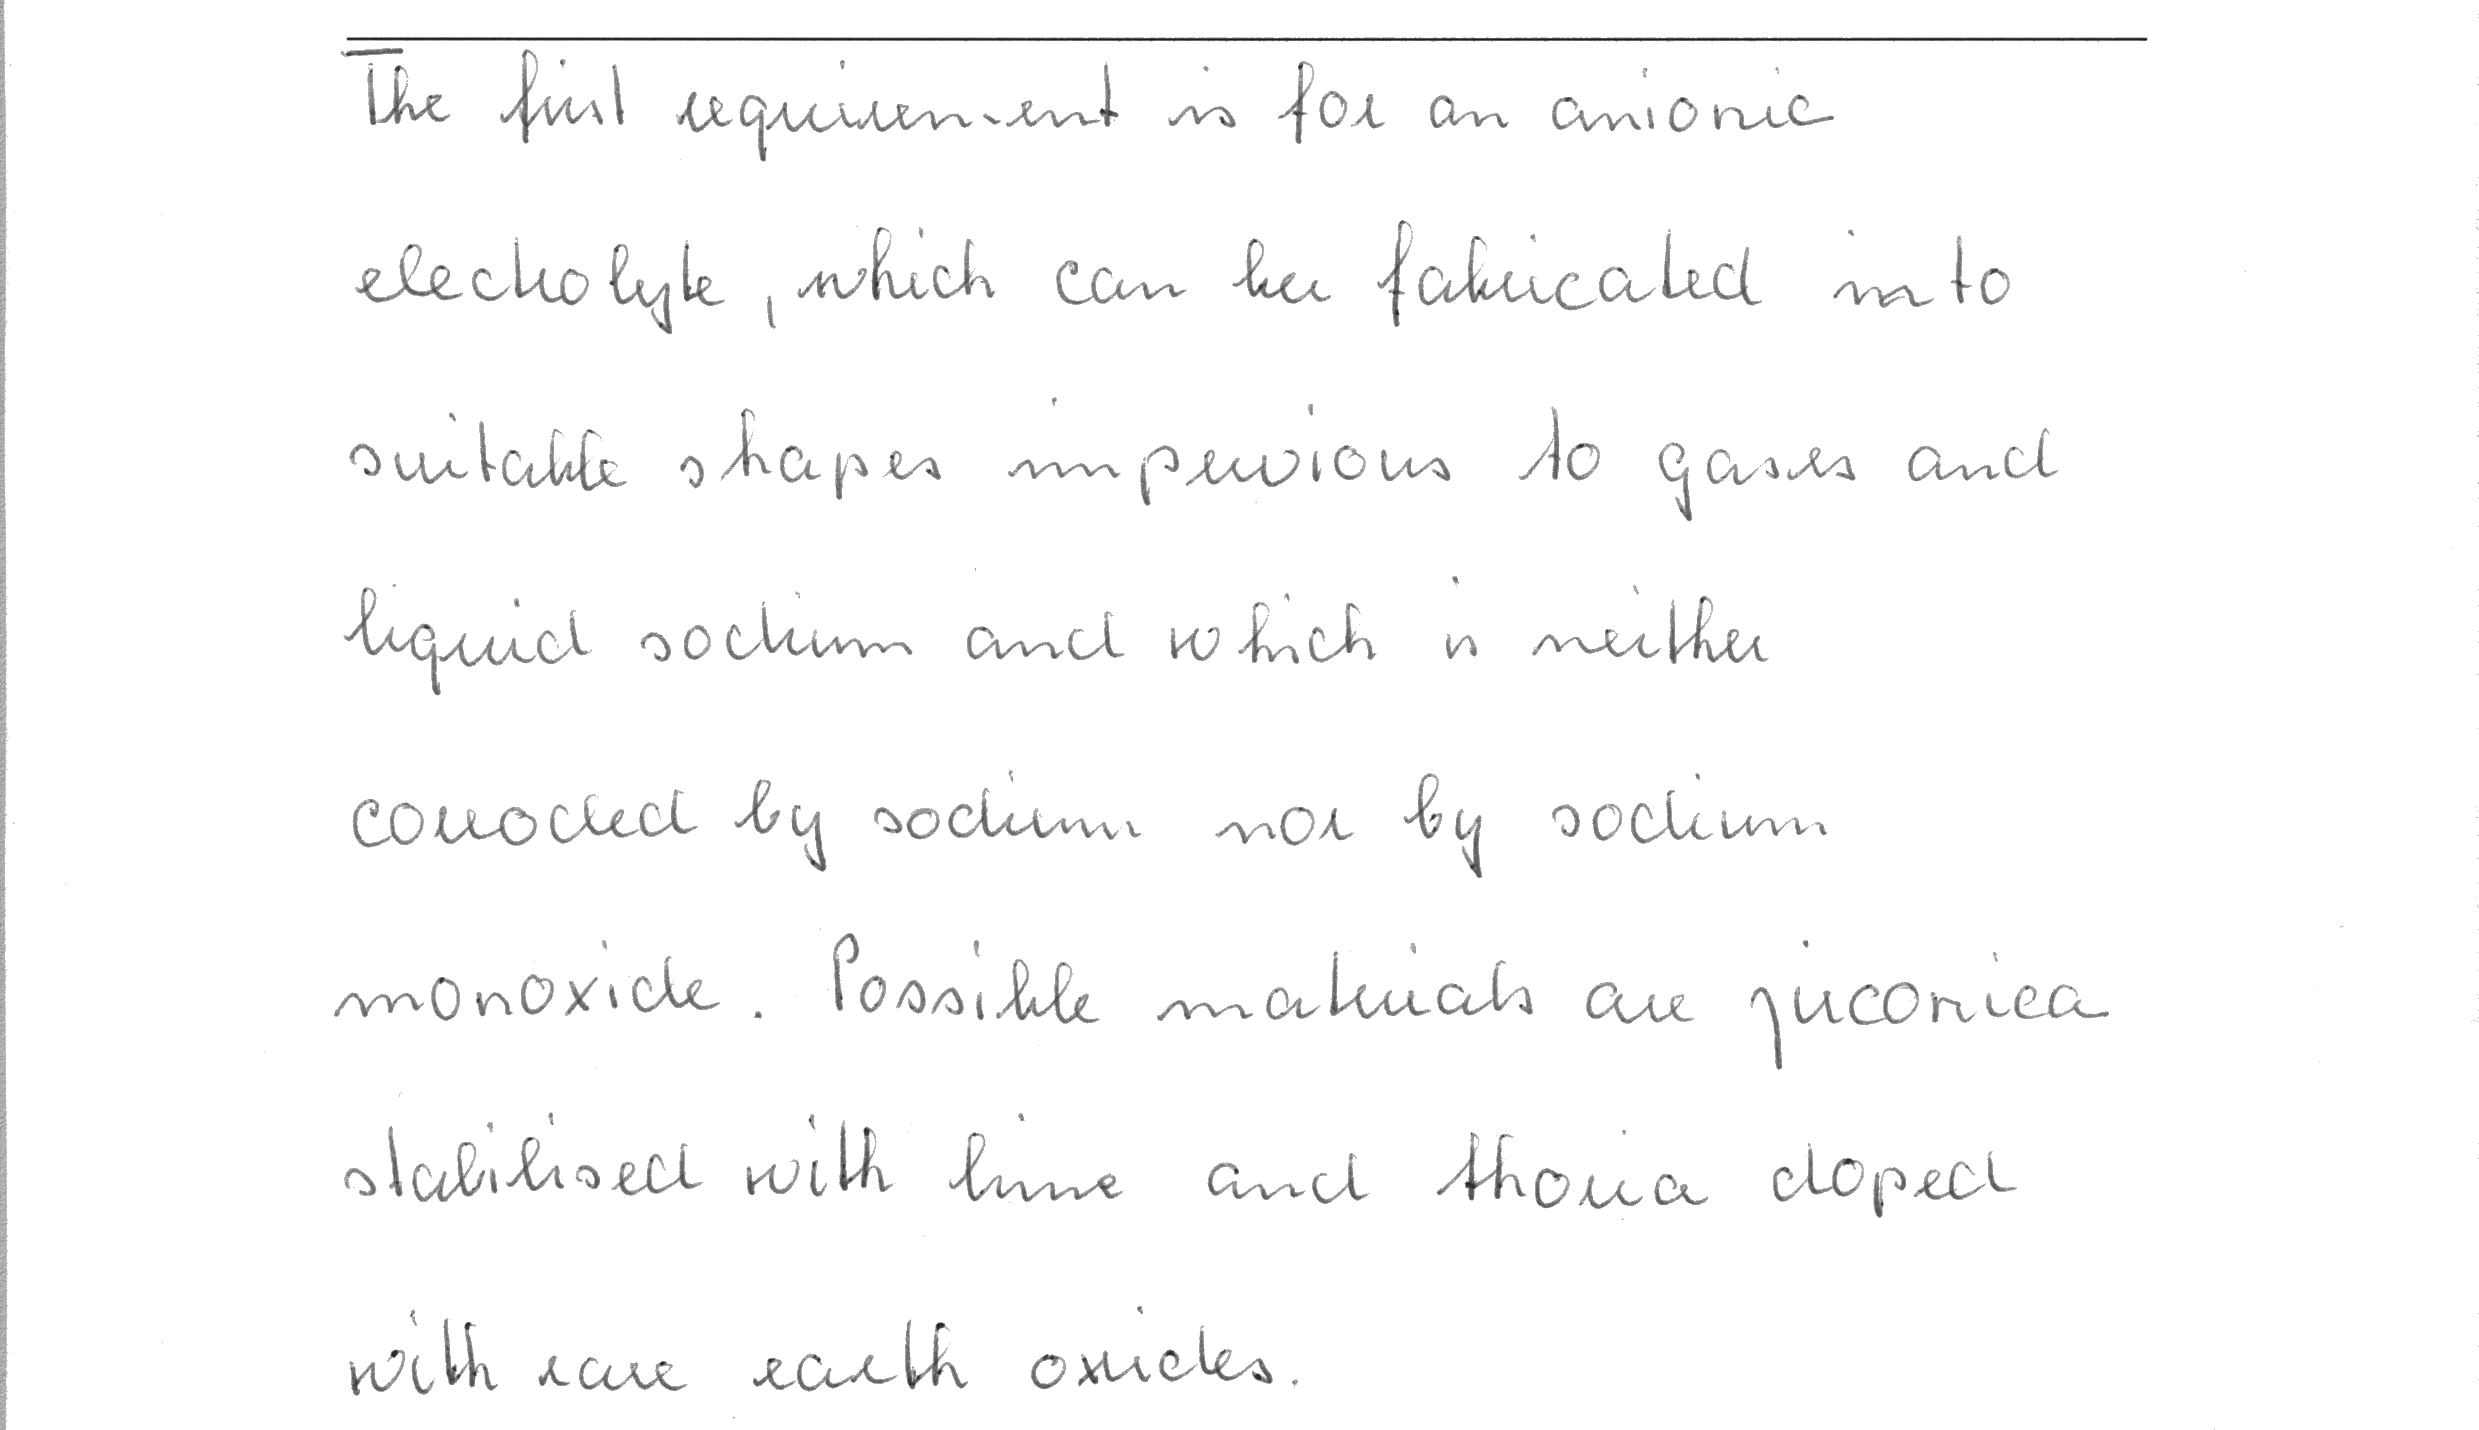 The first requirement is for an anionic
electrolyte, which can be fabricated into
suitable shapes impervious to gases and
liquid sodium and which is neither
corroded by sodium nor by sodium
monoxide. Possible materials are zirconica
stabilised with lime and thoria doped
with rare earth oxides.